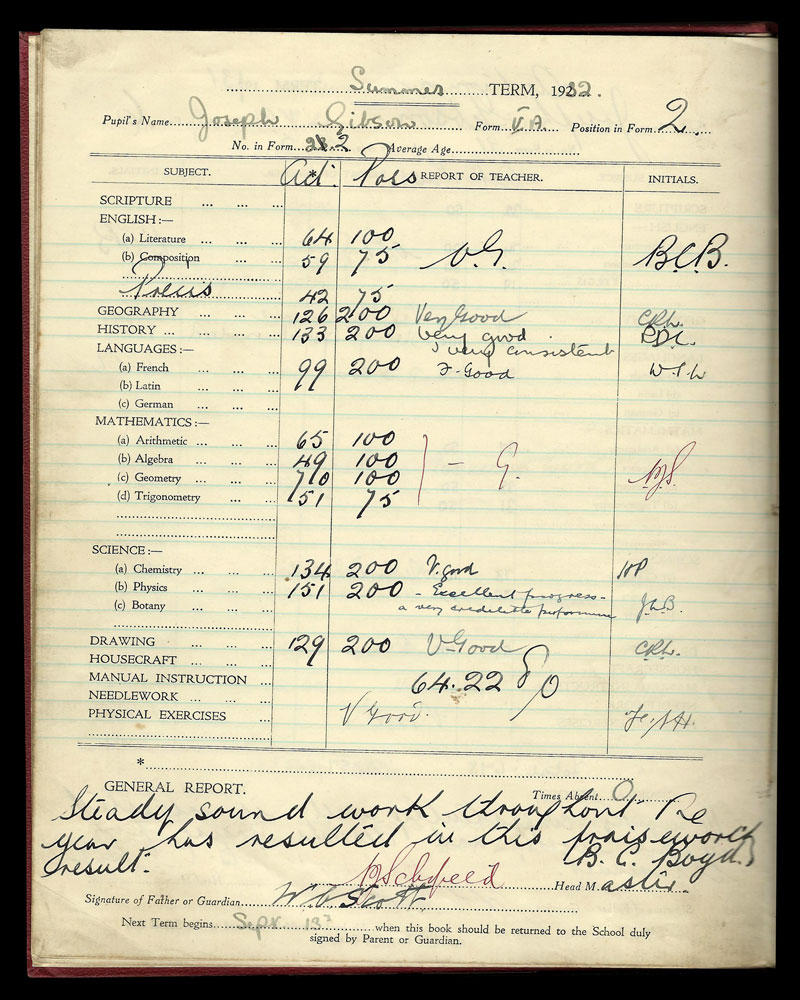 Summer TERM, 1932.
Pupil's Name Joseph Gibson Form V A Position in Form 2.
No. in Form 2 Average Age
SUBJECT. Act. Poss REPORT OF TEACHER. INITIALS.
SCRIPTURE
ENGLISH:—
(a) Literature 64 100
(b) Composition 59 75 V.G. B.C.B.
Precis 42 75
GEOGRAPHY 126 200 Very Good C.R.L.
HISTORY 133 200 Very good
very consistent
LANGUAGES:—
(a) French 99 200 F. Good
(b) Latin
(c) German
MATHEMATICS:—
(a) Arithmetic 65 100
(b) Algebra 49 100
(c) Geometry 70 100 – G.
(d) Trigonometry 51 75
SCIENCE:—
(a) Chemistry 134 200 V. good
(b) Physics 151 200 – Excellent progress –
(c) Botany a very creditable performance
DRAWING 129 200 V Good C.R.L.
HOUSECRAFT
MANUAL INSTRUCTION 64.22 %
NEEDLEWORK
PHYSICAL EXERCISES V Good.
*
GENERAL REPORT. Times Absent 0
Steady sound work throughout the
year has resulted in this praiseworthy
result. B. C. Boyd.
Head Master.
Signature of Father or Guardian
Next Term begins Sept. 13 when this book should be returned to the School duly
signed by Parent or Guardian.